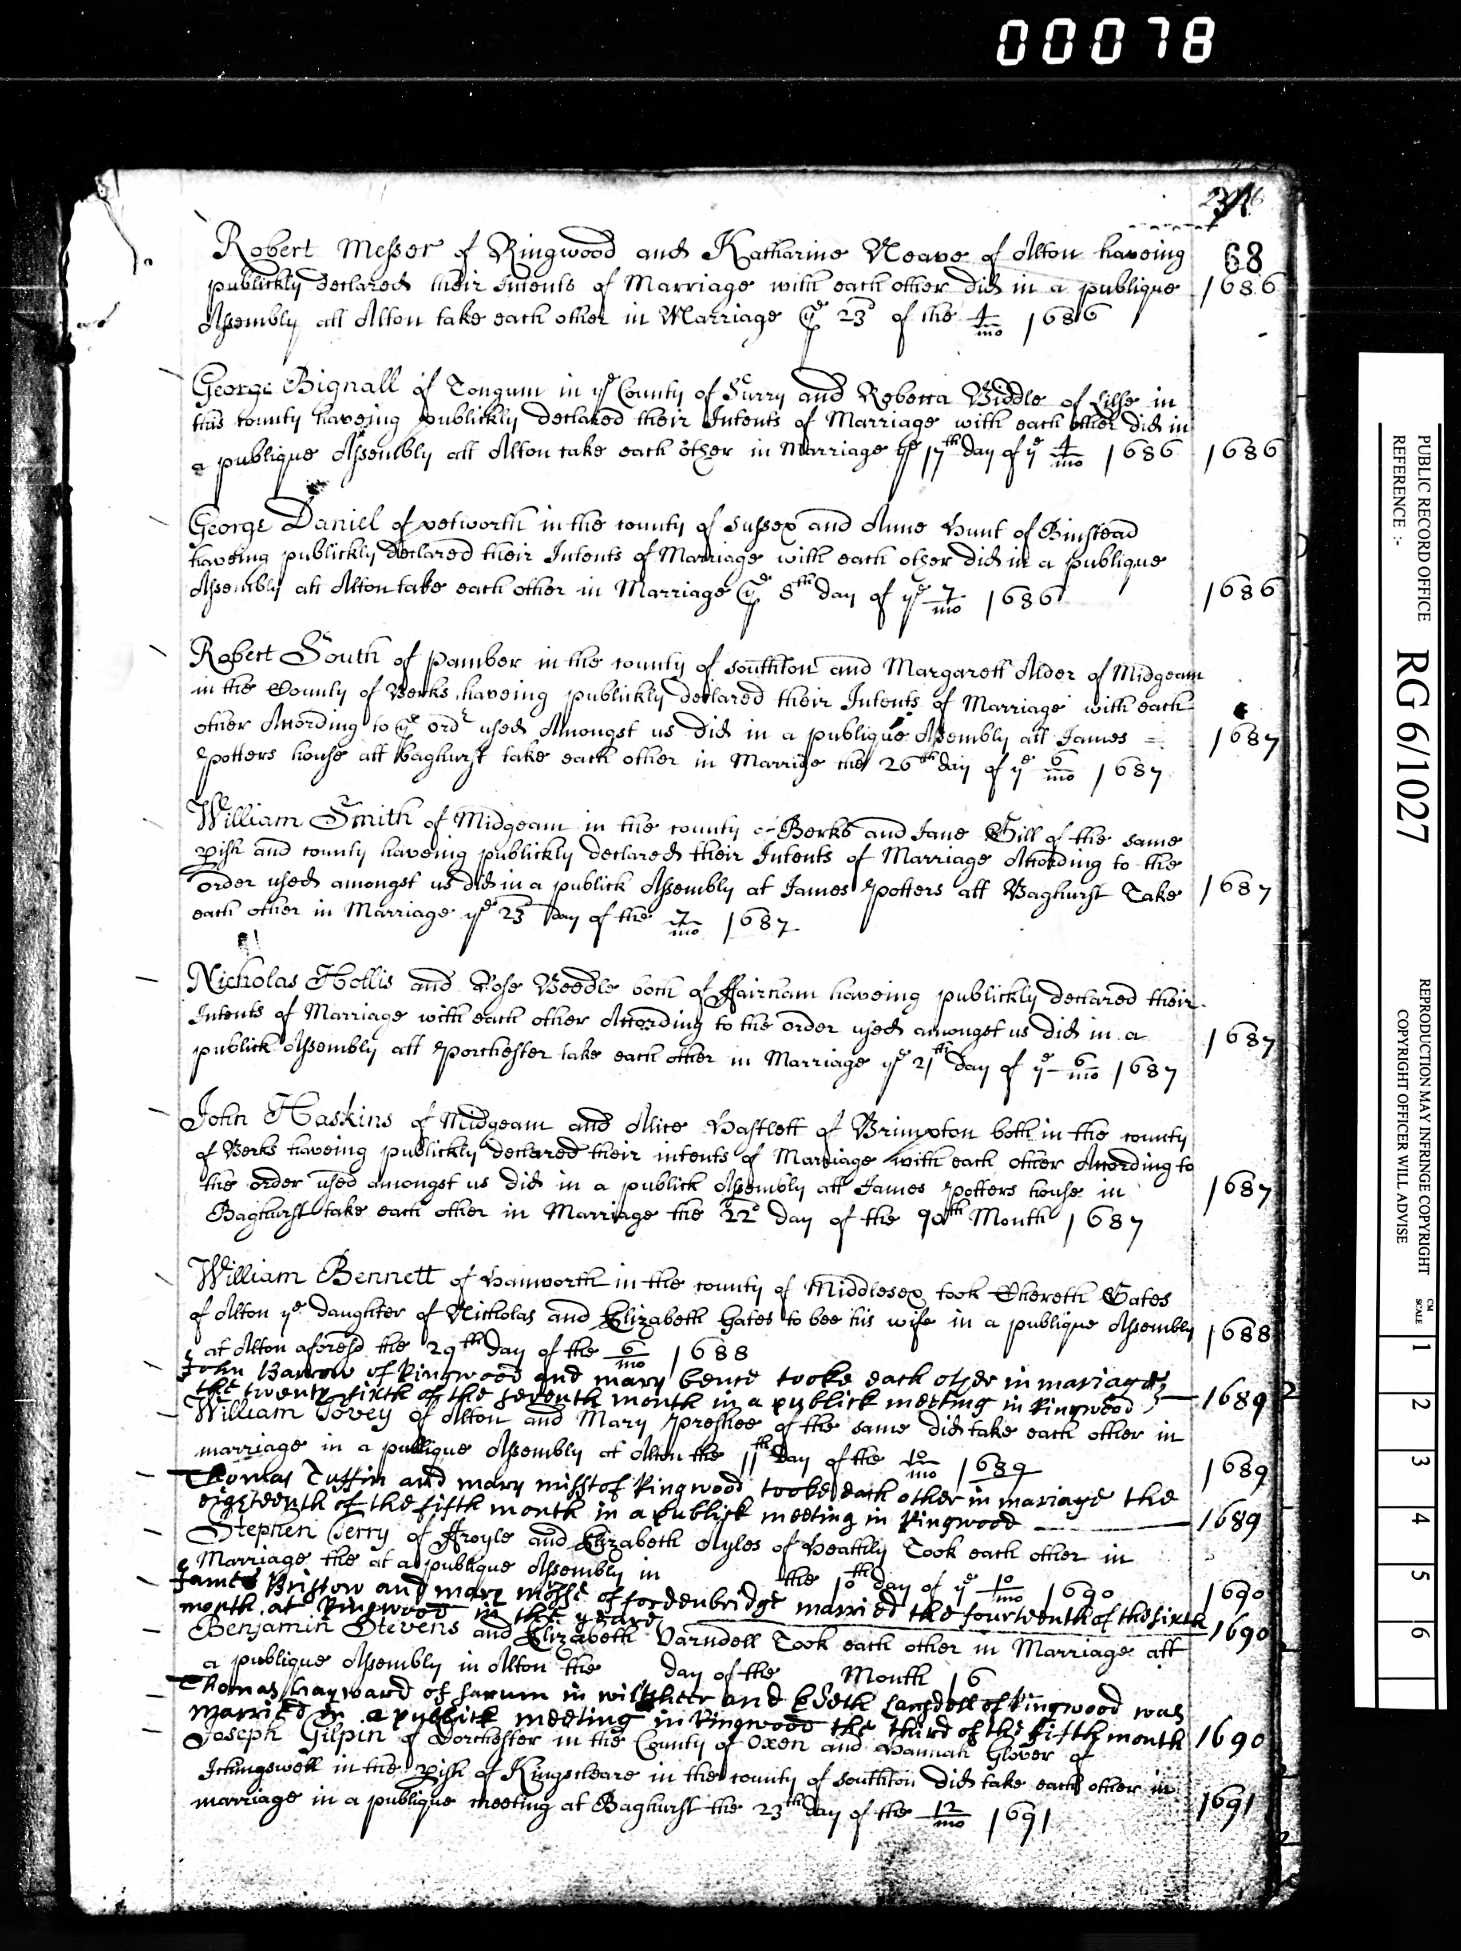 00078
68
Robert Messer of Ringwood and Katharine Neave of Alton haveing
publickly declared their Intents of Marriage with each other did in a publique 1686
Assembly att Alton take each other in Marriage ye 23d of the 4/mo 1686
George Bignall of Tongum in ye County of Surry and Rebecca Biddle of Lisse in
this county haveing publickly declared their Intents of Marriage with each other did in
a publique Assembly att Alton take each other in Marriage ye 17th day of ye 4/mo 1686 1686
George Daniel of petworth in the county of Sussex and Anne Hunt of Binstead
haveing publickly declared their Intents of Marriage with each other did in a publique
Assembly att Alton take each other in Marriage ye 8th day of ye 7/mo 1686 1686
Robert South of Pamber in the county of Southton and Margarett Alder of Midgeam
in the County of Berks haveing publickly declared their Intents of Marriage with each
other According to ye ordr used Amongst us Did in a publique Assembly att James = 1687
Potters house att Baghurst take each other in Marrige the 26th day of ye 6/mo 1687
William Smith of Midgeam in the county of Berks and Jane Gill of the same
pish and county haveing publickly declared their Intents of Marriage According to the
order used amongst us did in a publick Assembly at James Potters att Baghurst Take 1687
each other in Marriage ye 23d day of the 7/mo 1687
Nicholas Hollis and Rose Beedle both of Ffairham haveing publickly declared their
Intents of Marriage with each other According to the order used amongst us did in a 1687
publick Assembly att Porchester take each other in Marriage ye 21th day of ye 6/mo 1687
John Haskins of Midgeam and Alice Hastlett of Brimpton both in the county
of Berks haveing publickly declared their intents of Marriage with each other According to
the order used amongst us did in a publick Assembly att James Potters house in 1687
Baghurst take each other in Marriage the 22d day of the 9th Month 1687
William Bennett of Hanworth in the county of Middlesex took Gates
of Alton ye daughter of Nicholas and Elizabeth Gates to bee his wife in a publique Assembly 1688
at Alton aforesd the 29th day of the 6/mo 1688
John Barrow of Ringwood and mary bence tooke each other in mariage
the twenty sixth of the seventh month in a publick meeting in Ringwood 1689
William Tovey of Alton and Mary of the same did take each other in
marriage in a publique Assembly at Alton the 11th day of the 10/mo 1689 1689
Thomas and mary of Ringwood tooke each other in mariage the
eigteenth of the fifth month in a publick meeting in Ringwood 1689
Stephen Terry of Froyle and Elizabeth Ayles of Took each other in
Marriage the at a publique Assembly in the 10th day of ye 10/mo 1690 1690
James Bristow and mary mosse of fordenbridge married the fourteenth of the sixth
month at Ringwood in the yeare 1690
Benjamin Stevens and Elizabeth Varndell Took each other in Marriage att
a publique Assembly in Alton the day of the Month 16
Thomas hayward of sarum in and of Ringwood was
married in a publick meeting in Ringwood the third of the fifth month 1690
Joseph Gilpin of Dorchester in the County of Oxen and Hannah Glover of
Itchingswell in the pish of Kingscleare in the county of Southton did take each other in
marriage in a publique meeting at Baghurst the 23th day of the 12/mo 1691 1691
PUBLIC RECORD OFFICE
REFERENCE :-
RG 6/1027
REPRODUCTION MAY INFRINGE COPYRIGHT
COPYRIGHT OFFICER WILL ADVISE
CM
SCALE
1
2
3
4
5
6